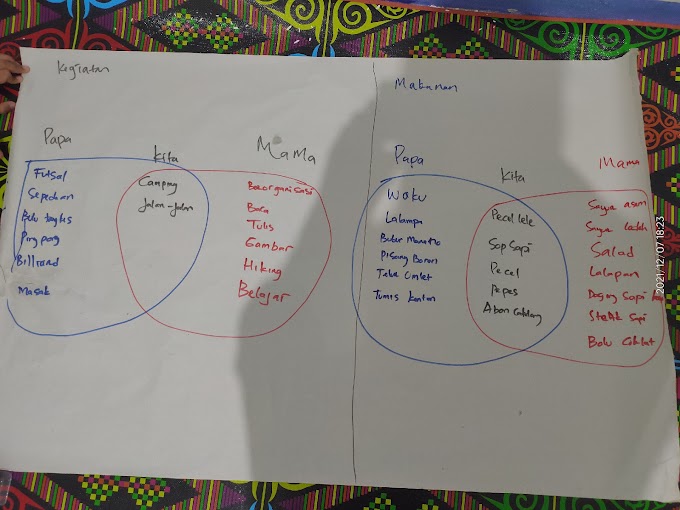 Kegiatan
Papa
Kita
Mama
Futsal
Sepedaan
Bulu tangkis
Ping pong
Billiard
Masak
Camping
Jalan-Jalan
Baca
Tulis
Gambar
Hiking
Belajar
Makanan
Papa
Kita
Mama
Woku
Lalampa
Bubur Manado
Pisang
Telur Omlet
Tumis
Pecel lele
Sop Sapi
Pecel
Pepes
Abon
Sayur asem
Sayur
Salad
Lalapan
Daging Sapi
Steak Sapi
Bolu Coklat
2021/12/07 18:23